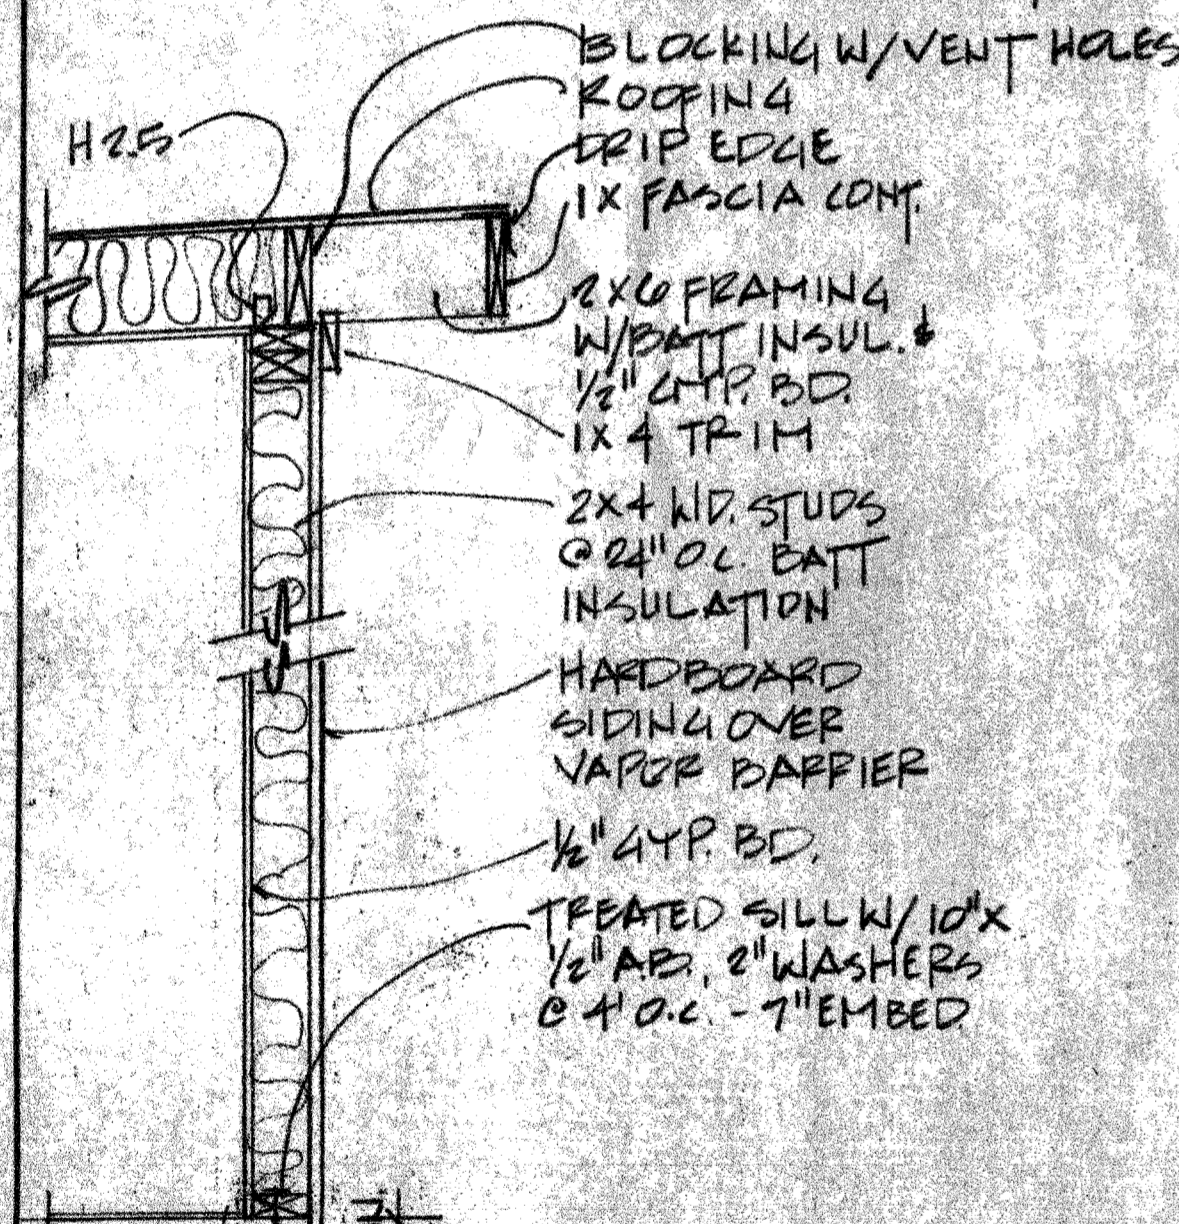 BLOCKING W/VENT HOLES
ROOFING
H2.5
DRIP EDGE
1X FASCIA CONT.
2X6 FRAMING
W/BATT INSUL. &
1/2" GYP. BD.
1X4 TRIM
2X4 WD. STUDS
@ 24" O.C. BATT
INSULATION
HARDBOARD
SIDING OVER
VAPOR BARRIER
1/2" GYP. BD.
TREATED SILL W/ 10"X
1/2" A.B., 2" WASHERS
@ 4' O.C. - 7" EMBED.